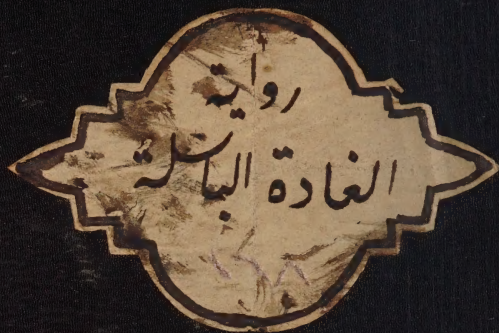 رواية
الغادة الباسلة